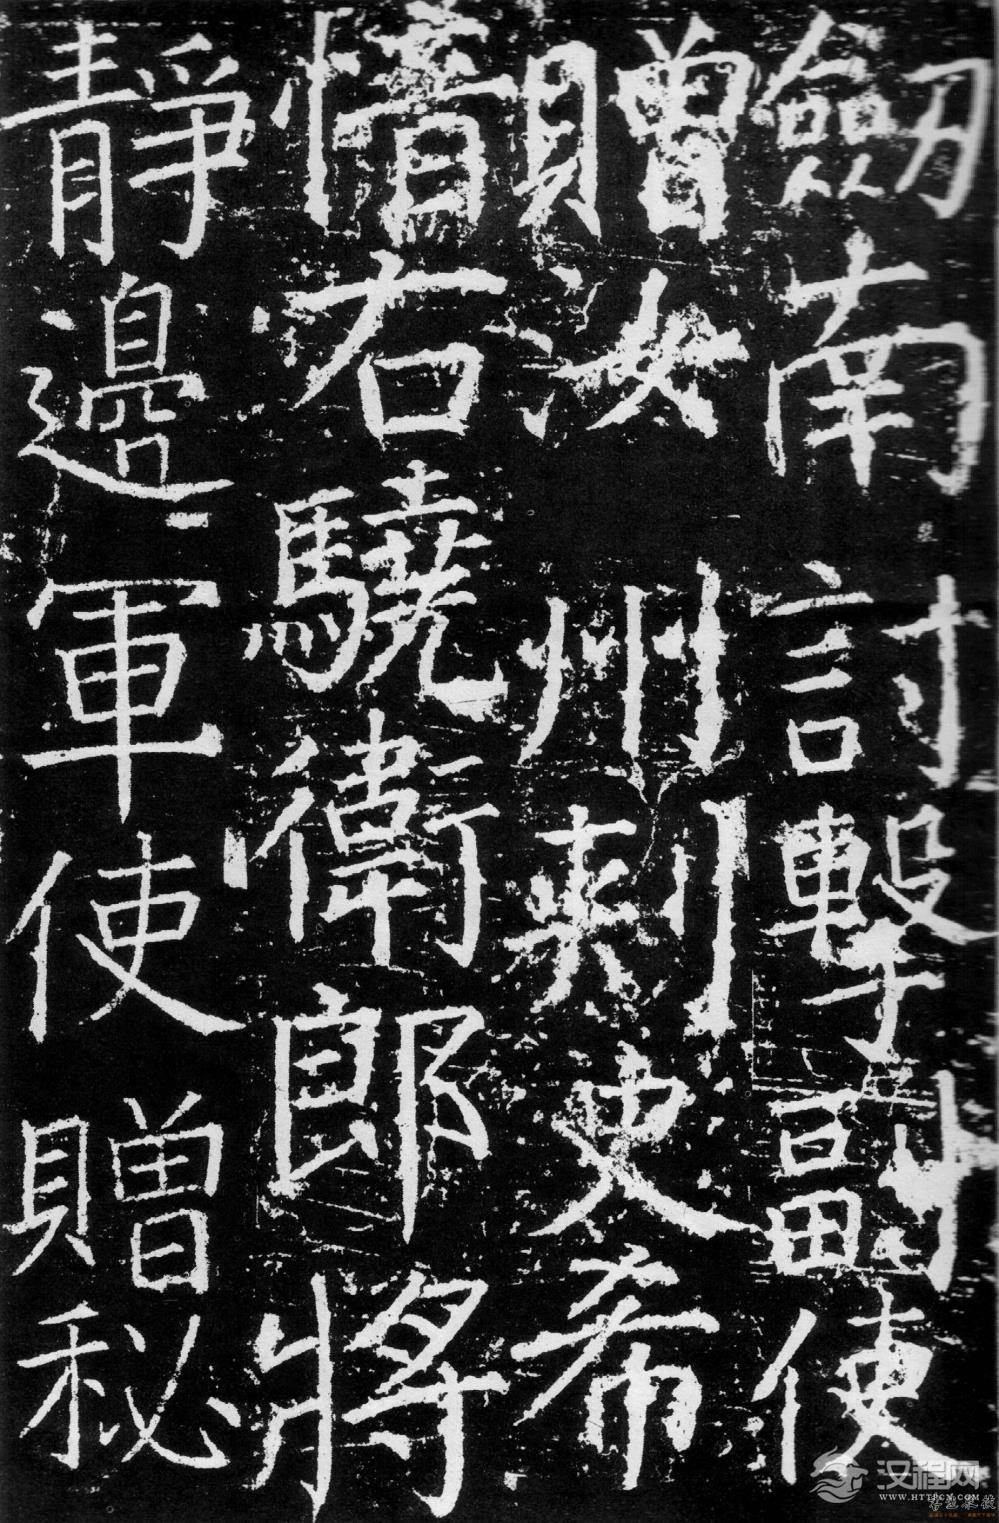 劒南討擊副使
贈汝州刺史希
愔右驍衛郎將
靜邊軍使贈秘
汉程网
WWW.HTTPCN.COM